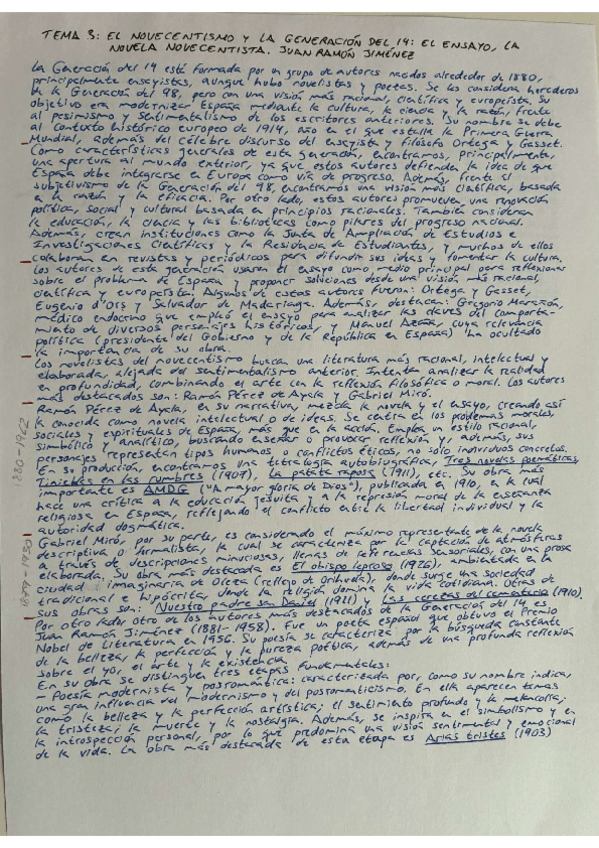 TEMA 3: EL NOVECENTISMO Y LA GENERACIÓN DEL 14: EL ENSAYO, LA
NOVELA NOVECENTISTA. JUAN RAMÓN JIMÉNEZ
La Generación del 14 está formada por un grupo de autores nacidos alrededor de 1880,
principalmente ensayistas, aunque hubo novelistas y poetas. Se les considera herederos
de la Generación del 98, pero con una visión más racional, científica y europeísta. Su
objetivo era modernizar España mediante la cultura, la ciencia y la razón, frente
al pesimismo y sentimentalismo de los escritores anteriores. Su nombre se debe
al contexto histórico europeo de 1914, año en el que estalla la Primera Guerra
Mundial, además del célebre discurso del ensayista y filósofo Ortega y Gasset.
Como características generales de esta generación, encontramos, principalmente,
una apertura al mundo exterior, ya que estos autores defienden la idea de que
España debe integrarse en Europa como vía de progreso. Además, frente al
subjetivismo de la Generación del 98, encontramos una visión más científica, basada
en la razón y la eficacia. Por otro lado, estos autores promueven una renovación
política, social y cultural basada en principios racionales. También consideran
la educación, la ciencia y las bibliotecas como pilares del progreso nacional.
Además, crean instituciones como la Junta de Ampliación de Estudios e
Investigaciones Científicas y la Residencia de Estudiantes, y muchos de ellos
colaboran en revistas y periódicos para difundir sus ideas y fomentar la cultura.
Los autores de esta generación usaron el ensayo como medio principal para reflexionar
sobre el problema de España y proponer soluciones desde una visión más racional,
científica y europeísta. Algunos de estos autores fueron: Ortega y Gasset,
Eugenio d'Ors y Salvador de Madariaga. Además, destacan: Gregorio Marañón,
médico endocrino que empleó el ensayo para analizar las claves del comporta-
miento de diversos personajes históricos, y Manuel Azaña, cuya relevancia
política (presidente del Gobierno y de la República en España) ha ocultado
la importancia de su obra.
Los novelistas del novecentismo buscan una literatura más racional, intelectual y
elaborada, alejada del sentimentalismo anterior. Intentan analizar la realidad
en profundidad, combinando el arte con la reflexión filosófica o moral. Los autores
más destacados son: Ramón Pérez de Ayala y Gabriel Miró.
Ramón Pérez de Ayala, en su narrativa, mezcla la novela y el ensayo, creando así
la conocida como novela intelectual o de ideas. Se centra en los problemas morales,
sociales y espirituales de España más que en la acción. Emplea un estilo racional,
simbólico y analítico, buscando enseñar o provocar reflexión y, además, sus
personajes representan tipos humanos o conflictos éticos, no solo individuos concretos.
En su producción, encontramos una tetralogía autobiográfica, Tres novelas poemáticas,
Tinieblas en las cumbres (1907), La pata de la raposa (1911), etc. Su obra más
importante es AMDG ("A mayor gloria de Dios"), publicada en 1910, en la cual
hace una crítica a la educación jesuita y a la represión moral de la enseñanza
religiosa en España, reflejando el conflicto entre la libertad individual y la
autoridad dogmática.
Gabriel Miró, por su parte, es considerado el máximo representante de la novela
descriptiva o formalista, la cual se caracteriza por la captación de atmósferas
a través de descripciones minuciosas, llenas de referencias sensoriales, con una prosa
elaborada. Su obra más destacada es El obispo leproso (1926), ambientada en la
ciudad imaginaria de Oleza (reflejo de Orihuela), donde surge una sociedad
tradicional e hipócrita, donde la religión domina la vida cotidiana. Otras de
sus obras son: Nuestro padre san Daniel (1921) y Las cerezas del cementerio (1910).
Por otro lado otro de los autores más destacados de la Generación del 14 es
Juan Ramón Jiménez (1881-1958). Fue un poeta español que obtuvo el Premio
Nobel de Literatura en 1956. Su poesía se caracteriza por la búsqueda constante
de la belleza, la perfección y la pureza poética, además de una profunda reflexión
sobre el yo, el arte y la existencia.
En su obra se distinguen tres etapas fundamentales:
- Poesía modernista y posromántica: caracterizada por, como su nombre indica,
una gran influencia del modernismo y del posromanticismo. En ella aparecen temas
como la belleza y la perfección artística; el sentimiento profundo y la melancolía;
la tristeza; la muerte y la nostalgia. Además, se inspira en el simbolismo y en
la introspección personal, por lo que predomina una visión sentimental y emocional
de la vida. La obra más destacada de esta etapa es Arias tristes (1903)
1880-1962
1879-1930